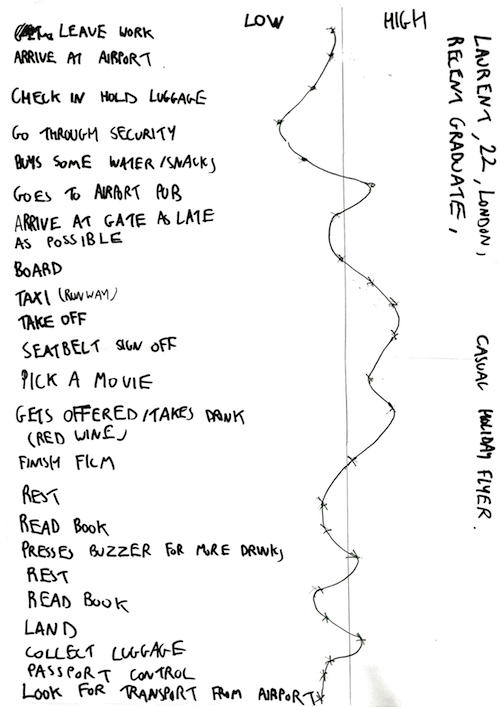 LOW
HIGH
LEAVE WORK
ARRIVE AT AIRPORT
CHECK IN HOLD LUGGAGE
GO THROUGH SECURITY
BUYS SOME WATER/SNACKS
GOES TO AIRPORT PUB
ARRIVE AT GATE AS LATE
AS POSSIBLE
BOARD
TAXI (RUNWAY)
TAKE OFF
SEATBELT SIGN OFF
PICK A MOVIE
GETS OFFERED/TAKES DRINK
(RED WINE)
FINISH FILM
REST
READ BOOK
PRESSES BUZZER FOR MORE DRINKS
REST
READ BOOK
LAND
COLLECT LUGGAGE
PASSPORT CONTROL
LOOK FOR TRANSPORT FROM AIRPORT
LAURENT, 22, LONDON,
RECENT GRADUATE,
CASUAL HOLIDAY FLYER.